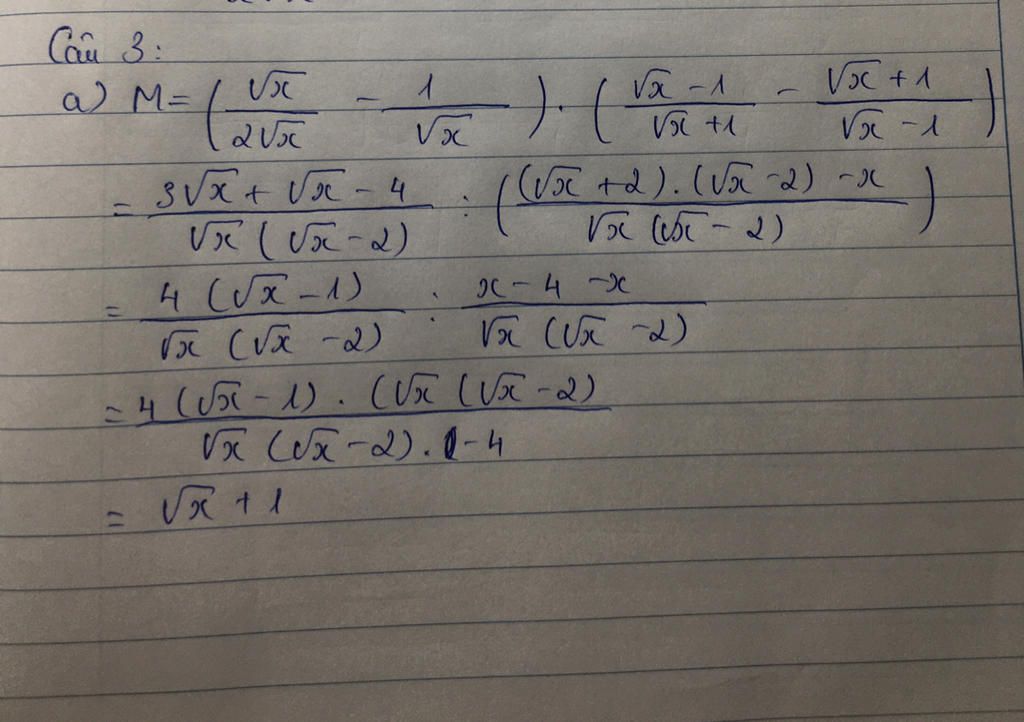 Câu 3:
a) M = (√x / 2√x - 1 / √x) . (√x - 1 / √x + 1 - √x + 1 / √x - 1)
= 3√x + √x - 4 / √x (√x - 2) : ((√x + 2) . (√x - 2) - x / √x (√x - 2))
= 4 (√x - 1) / √x (√x - 2) : x - 4 - x / √x (√x - 2)
= 4 (√x - 1) . (√x (√x - 2) / √x (√x - 2) . - 4
= √x + 1